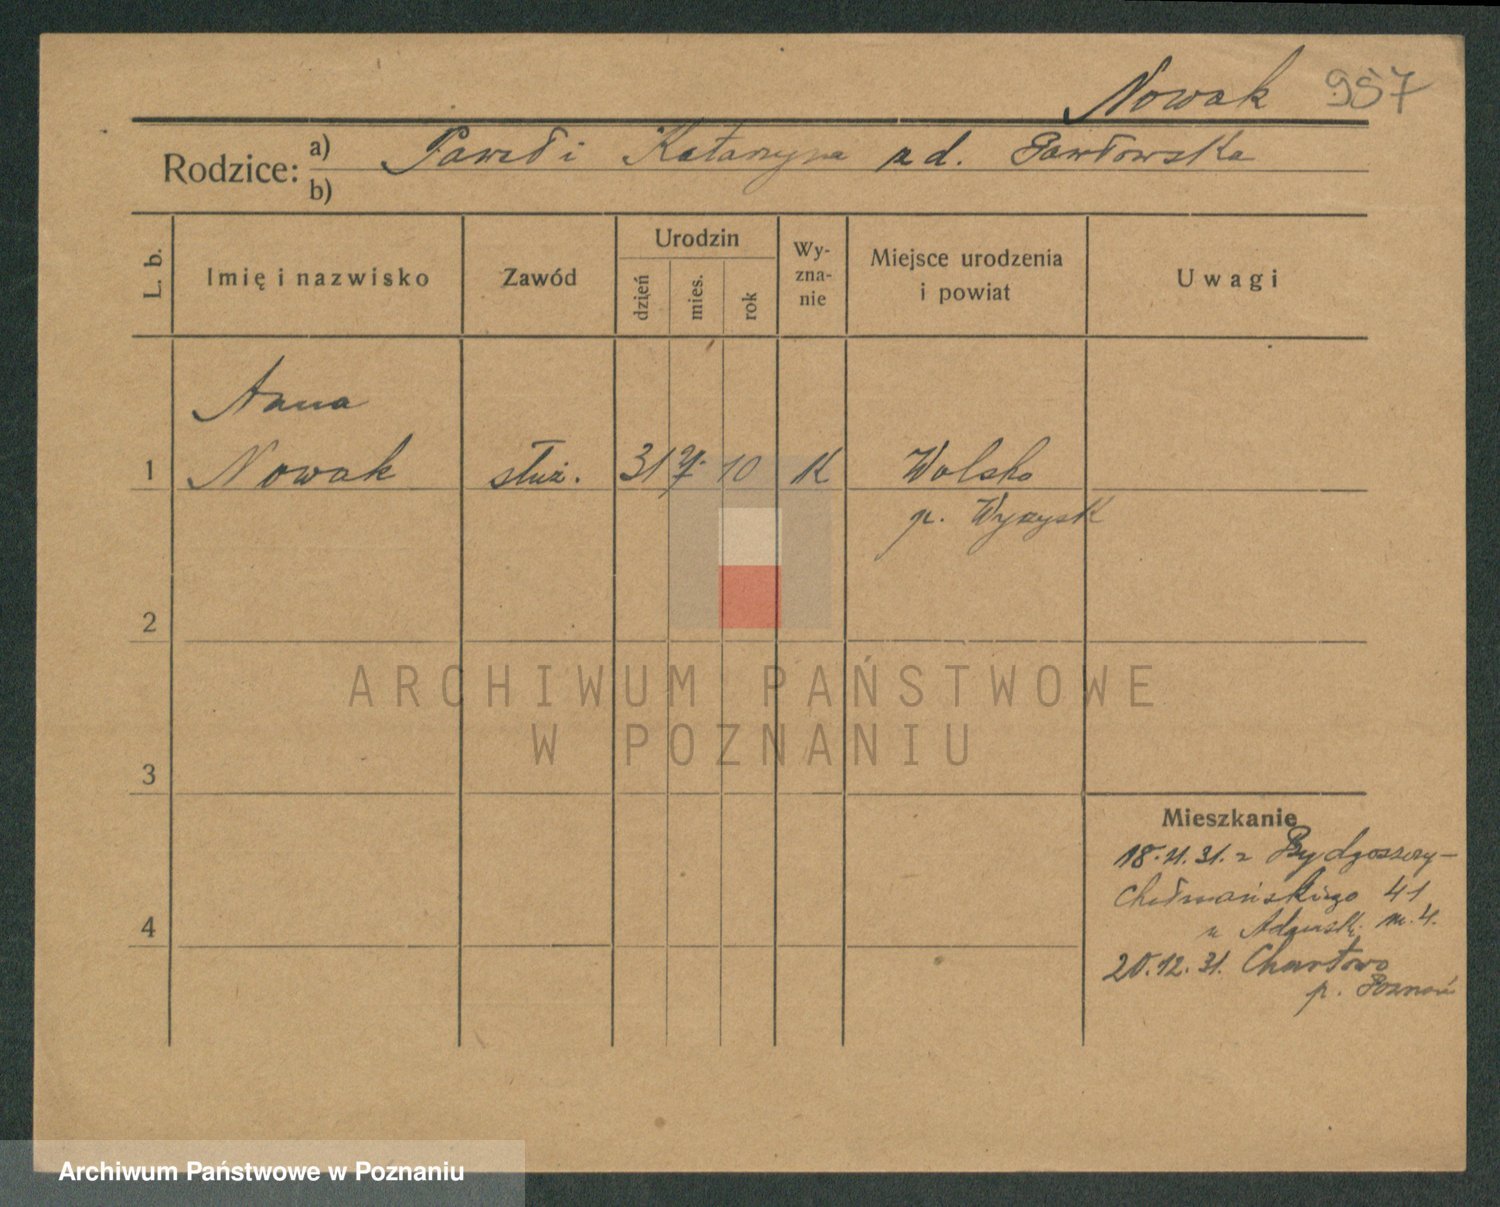 Nowak 957
Rodzice: a) Paweł i Katarzyna z d. Pawłowska
b)
L. b.
Imię i nazwisko
Zawód
Urodzin
dzień
mies.
rok
Wy-
zna-
nie
Miejsce urodzenia
i powiat
Uwagi
Anna
1 Nowak służ. 31 7. 10 K Wolsko
p. Wyrzysk
2
ARCHIWUM PAŃSTWOWE
W POZNANIU
3
Mieszkanie
18.11.31. z Bydgoszczy-
41
4
u m. 4.
20.12.31. Chartowo
p. Poznań
Archiwum Państwowe w Poznaniu